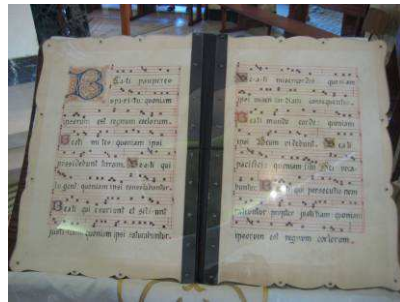 Beati pauperes
spiritu: quoniam
ipsorum est regnum coelorum.
Beati mites: quoniam ipsi
possidebunt terram. Beati qui
lugent: quoniam ipsi consolabuntur.
Beati qui esuriunt et sitiunt
justitiam: quoniam ipsi saturabuntur.
Beati misericordes: quoniam
ipsi misericordiam consequentur.
Beati mundo corde: quoniam
ipsi Deum videbunt. Beati
pacifici: quoniam filii Dei voca-
buntur. Beati qui persecutionem
patiuntur propter justitiam: quoniam
ipsorum est regnum coelorum.